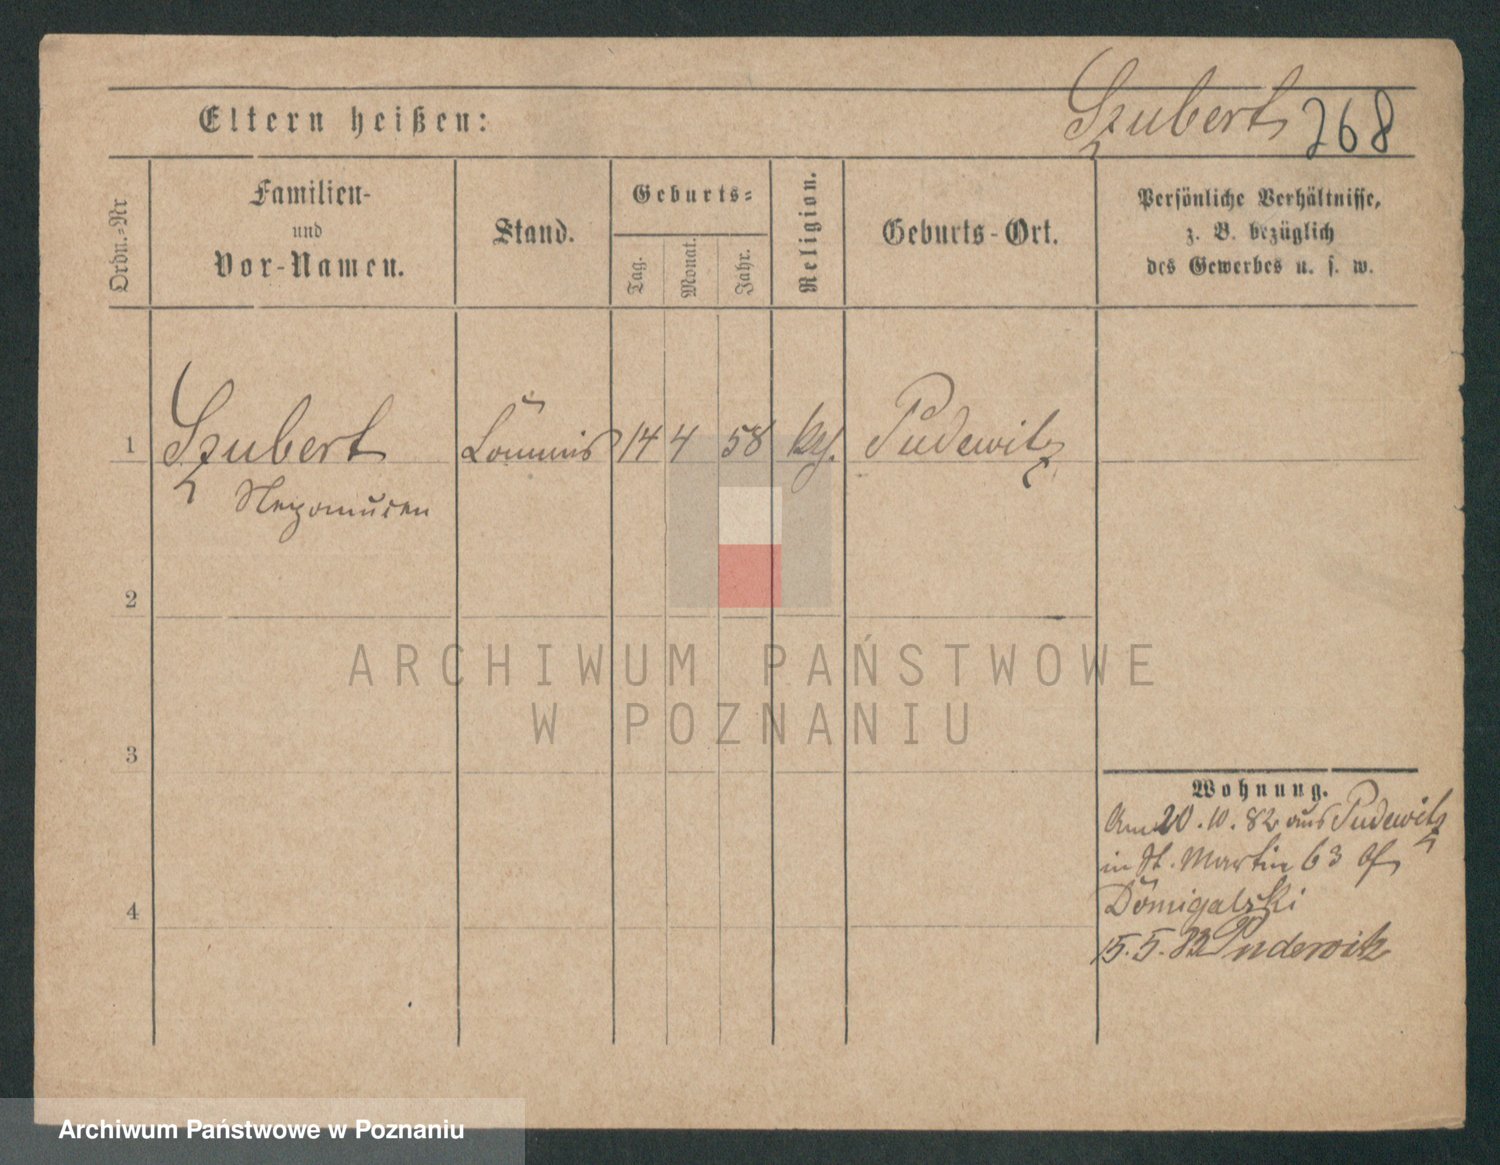 Szubert 268
Eltern heißen:
Ordn.-Nr
Familien-
und
Vor-Namen.
Stand.
Geburts-
Tag.
Monat.
Jahr.
Religion.
Geburts-Ort.
Persönliche Verhältnisse,
z. B. bezüglich
des Gewerbes u. s. w.
1 Szubert 14 4 58 Pudewitz
Nepomucen
2
3
4
Wohnung.
Am 20.10.82 aus Pudewitz
in St. Martin 63 bf
15.5.83 Pudewitz
ARCHIWUM PAŃSTWOWE
W POZNANIU
Archiwum Państwowe w Poznaniu